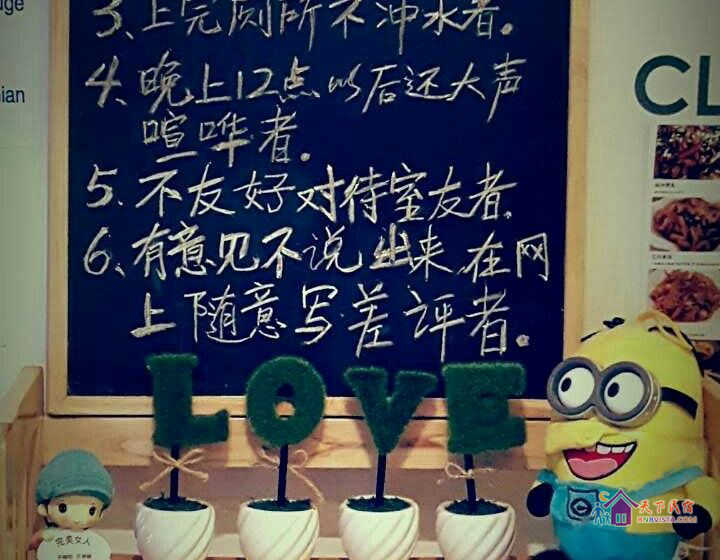 uge
3、上完厕所不冲水者。
4、晚上12点以后还大声
喧哗者。
5、不友好对待室友者。
6、有意见不说出来,在网
上随意写差评者。
ian
CL
LOVE
完美女人
天下民宿
HNBVISTA.COM